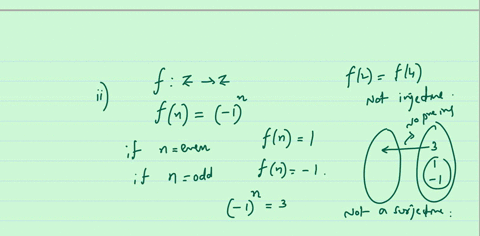 ii)
f : Z → Z
f(n) = (-1)^n
if n = even f(n) = 1
if n = odd f(n) = -1.
(-1)^n = 3
f(2) = f(4)
Not injective.
No preimg
3
1
-1
Not a surjective.